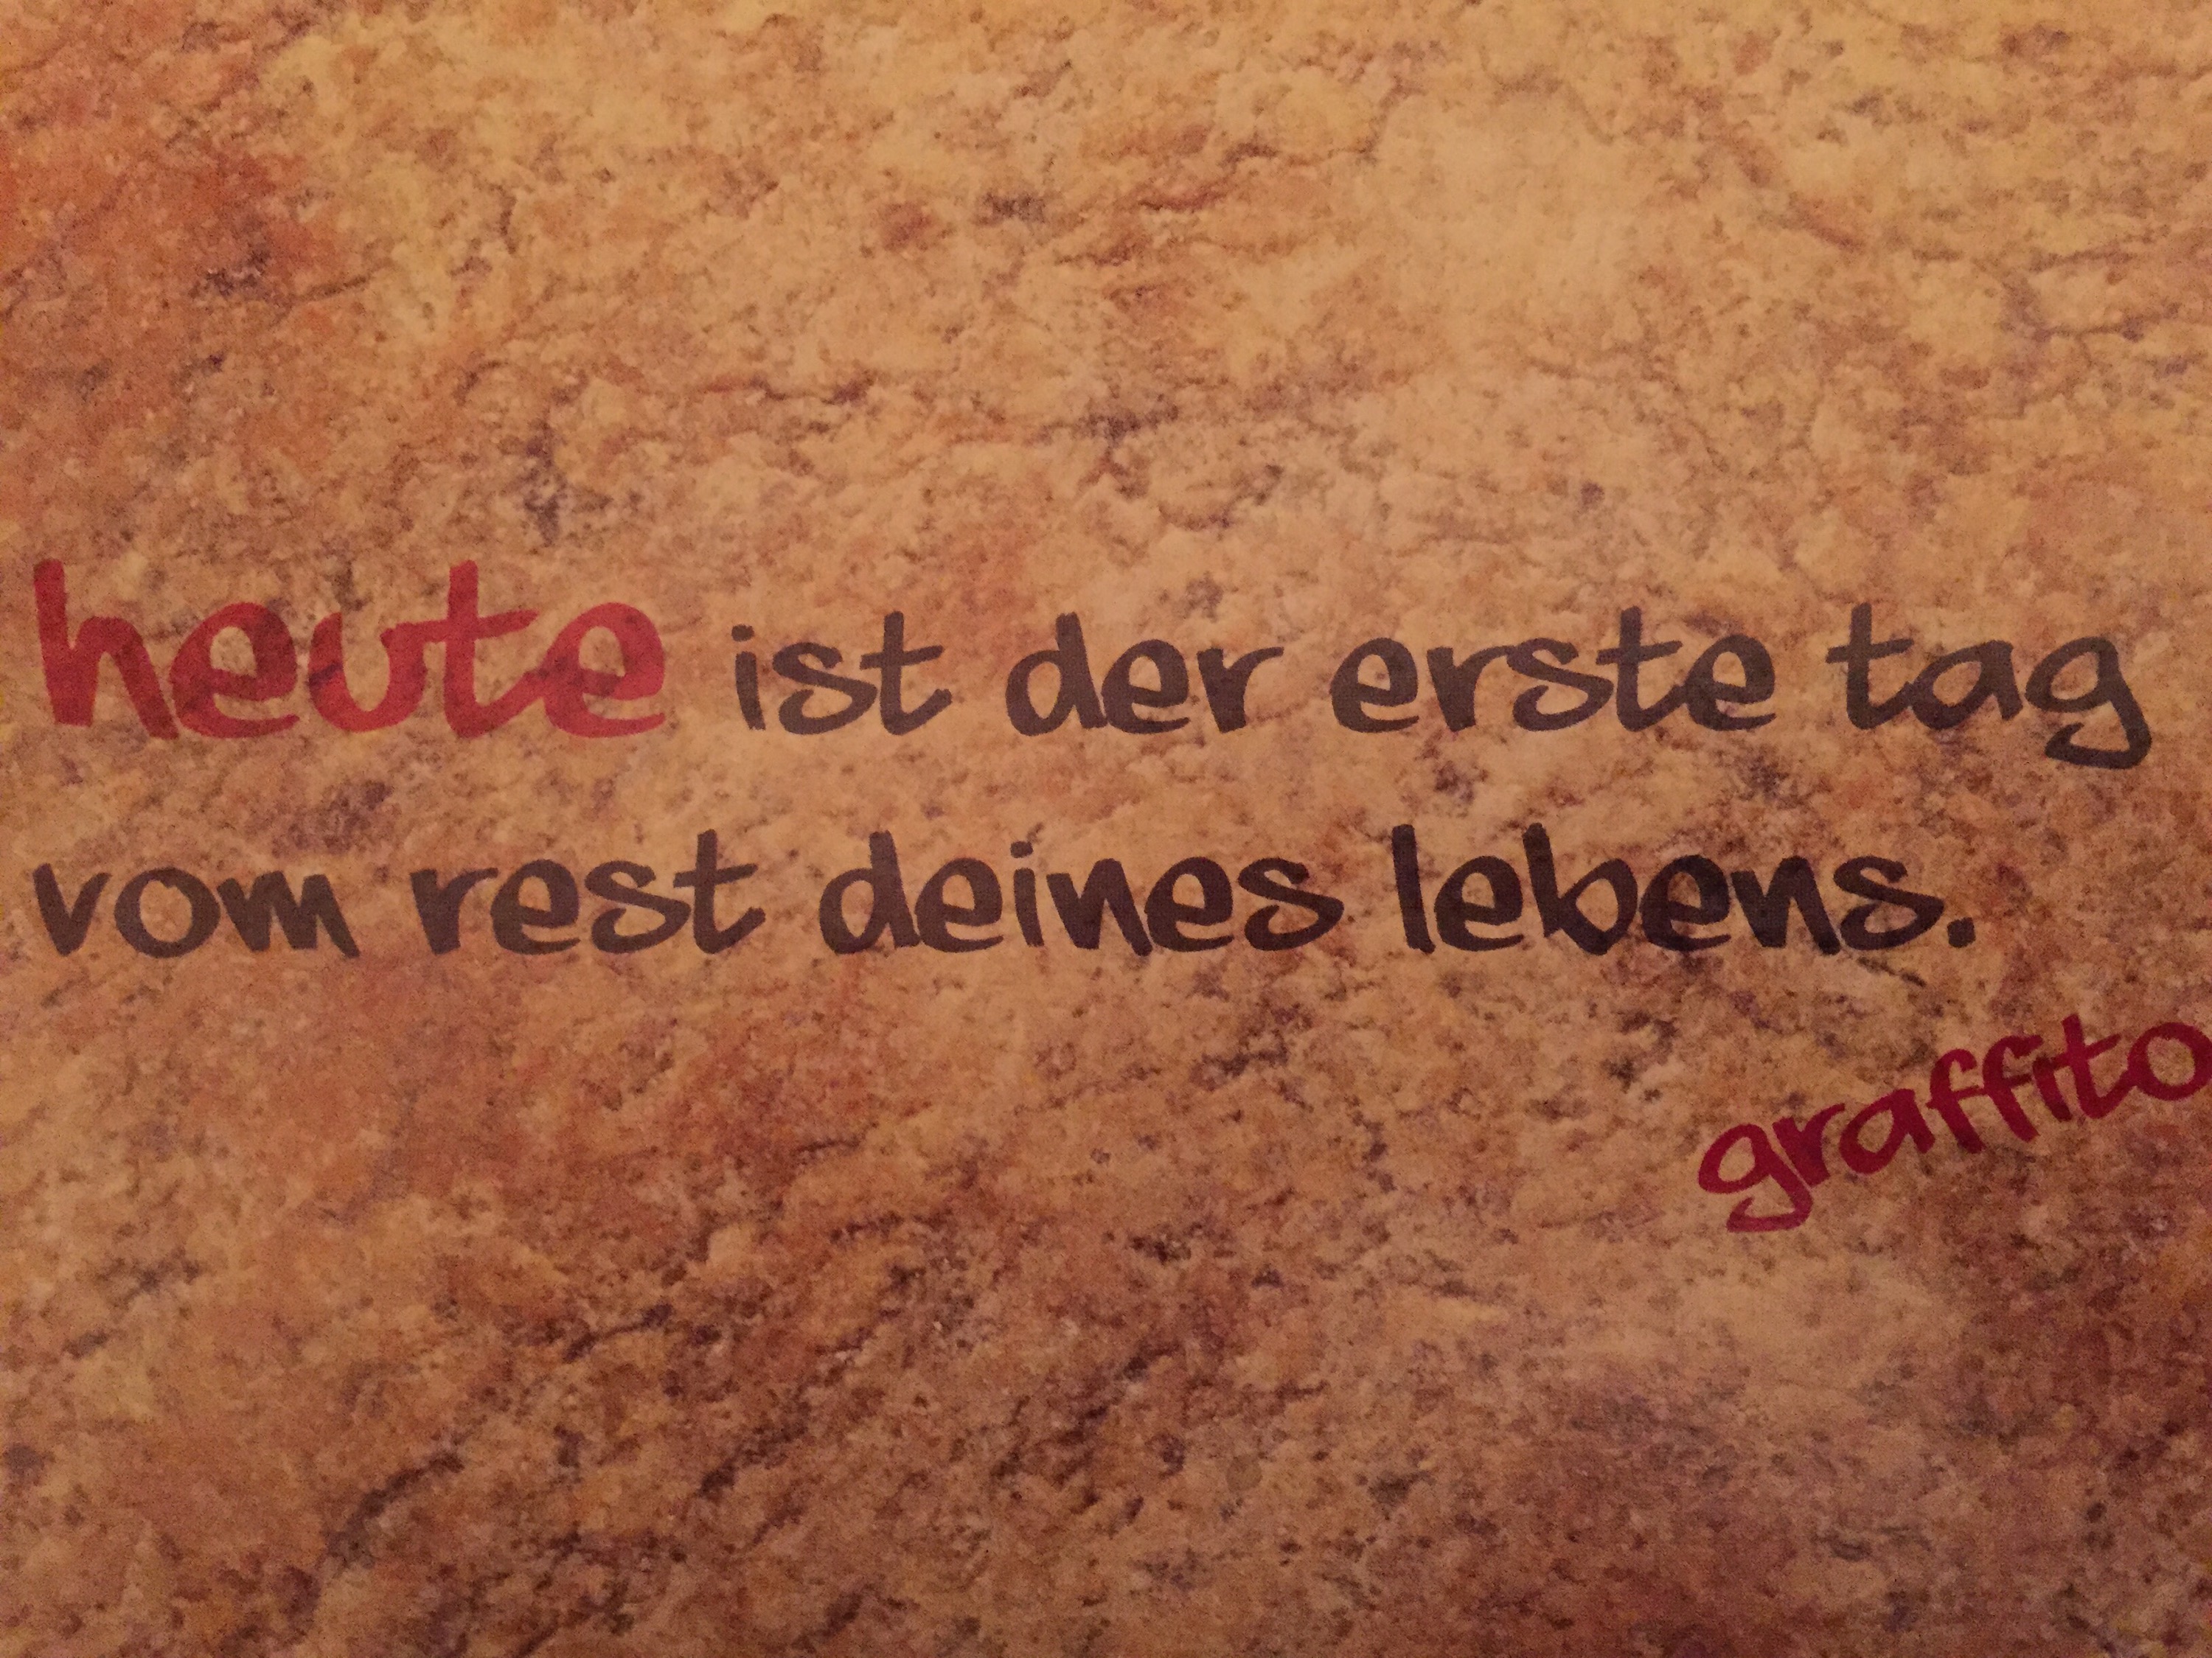 heute ist der erste tag
vom rest deines lebens.
graffito